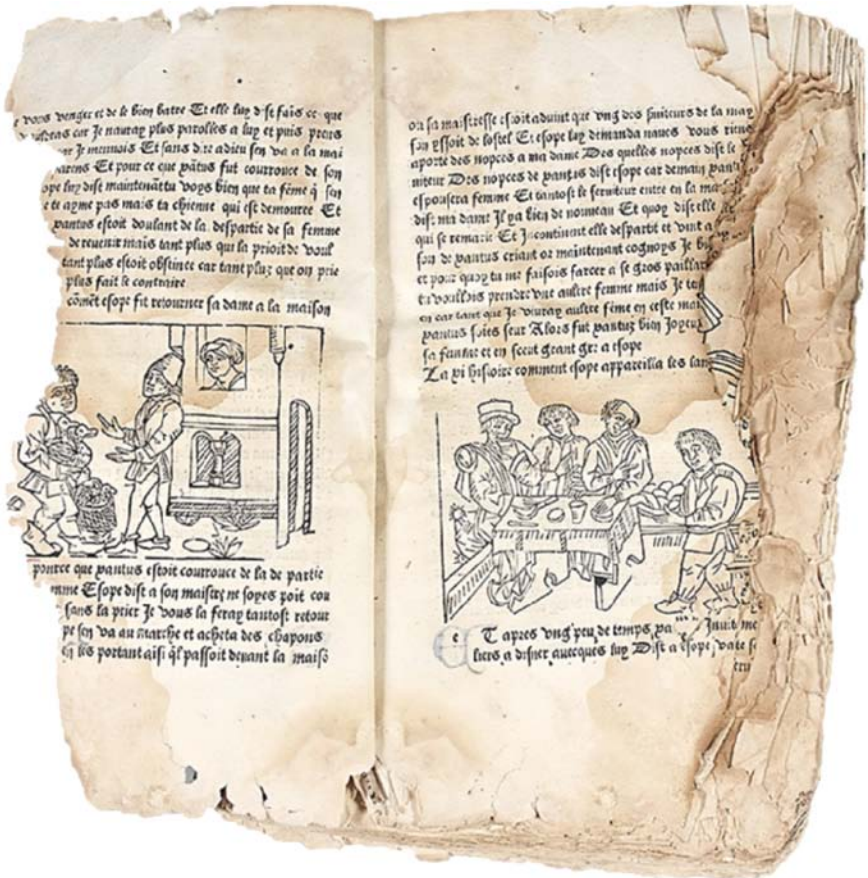 e vous venger et de le bien batre Et elle luy dist fais ce que
car Je nauray plus parolles a luy et puis prens
Je menvois Et sans dire adieu sen va a la mai
parens Et pour ce que pãtus fut courrouce de son
ope luy dist maintenãt tu voys bien que ta fẽme q̃ sen
e te ayme pas mais ta chienne qui est demouree Et
pantus estoit doulant de la despartie de sa femme
de revenir mais tant plus que la prioit de voul
tant plus estoit obstinee car tant pluz que on prie
plus fait le contraire
cõmẽt esope fit retourner sa dame a la maison
pource que pantus estoit courrouce de la de partie
mme Esope dist a son maistre ne soyes poit cou
sans la prier Je vous la feray tantost retour
pe sen va au marche et acheta des chapons
les portant aĩsi q̃l passoit devant la maisõ
ou sa maistresse estoit advint que vng des serviteurs de la may
son yssoit de lostel Et esope luy demanda naves vous riens
aporte des nopces a ma dame Des quelles nopces dist le
niteur Des nopces de pantus dist esope car demain pantu
espousera femme Et tantost le serviteur entre en la ma
dist ma dame Jl ya bien de nouveau Et quoy dist elle
qui se remarie Et Jncontinent elle despartit et vint a
son de pantus criant or maintenant cognoys Je bi
et pour quoy tu me faisois farcer a se gros paillar
tu voullois prendre vne aultre femme mais Je te
en car tant que Je vivray aultre fẽme en ceste mai
pantus soies seur Alors fut pantuz bien Joyeux
sa femme et en sceut grant gre a esope
La vi histoire comment esope appareilla les lan
e T apres vng peu de temps pa Jnvite me
liers a disner avecques luy Dist a esope va te